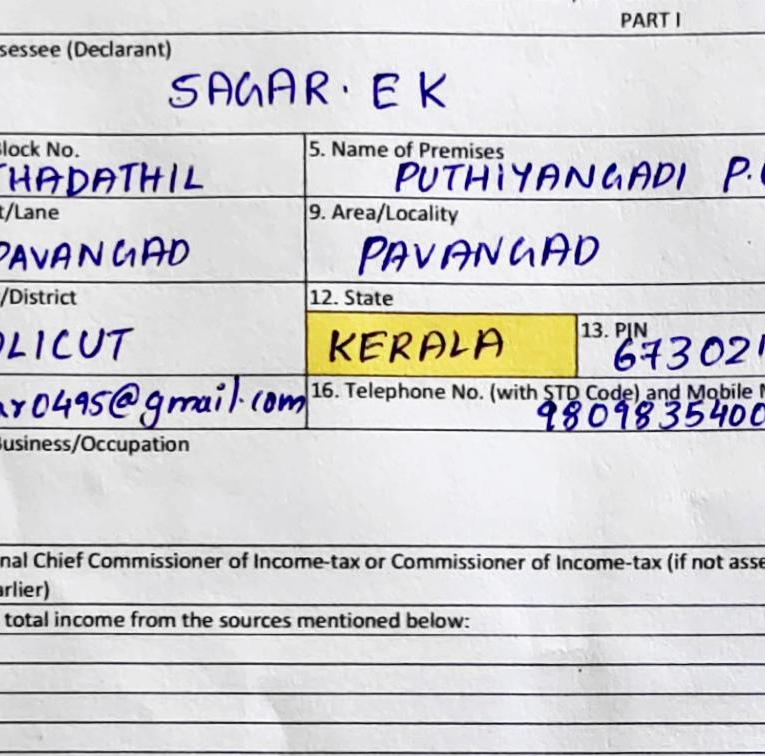 PART I
sessee (Declarant)
SAGAR. E K
lock No.
5. Name of Premises
THADATHIL
PUTHIYANGADI P.
t/Lane
9. Area/Locality
PAVANGAD
PAVANGAD
/District
12. State
13. PIN
OLICUT
KERALA
673021
ar0495@gmail.com
16. Telephone No. (with STD Code) and Mobile N
9809835400
Business/Occupation
nal Chief Commissioner of Income-tax or Commissioner of Income-tax (if not asse
arlier)
total income from the sources mentioned below: